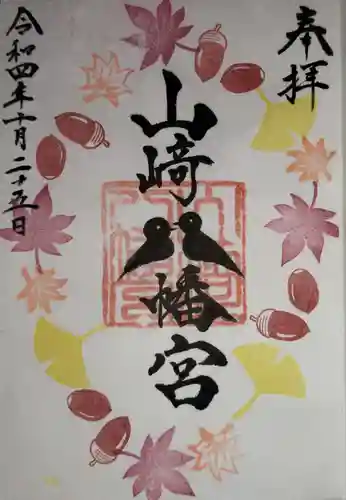 奉拝
山﨑八幡宮
令和四年十月二十五日